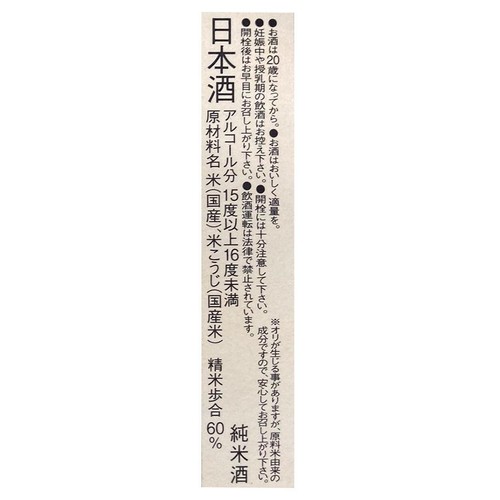 ●お酒は20歳になってから。●お酒はおいしく適量を。
●妊娠中や授乳期の飲酒はお控え下さい。●開栓には十分注意して下さい。
●開栓後はお早目にお召し上がり下さい。●飲酒運転は法律で禁止されています。
※オリが生じる事がありますが、原料米由来の
成分ですので、安心してお召し上がり下さい。
日本酒
アルコール分 15度以上16度未満
原材料名 米(国産)、米こうじ(国産米) 精米歩合60%
純米酒